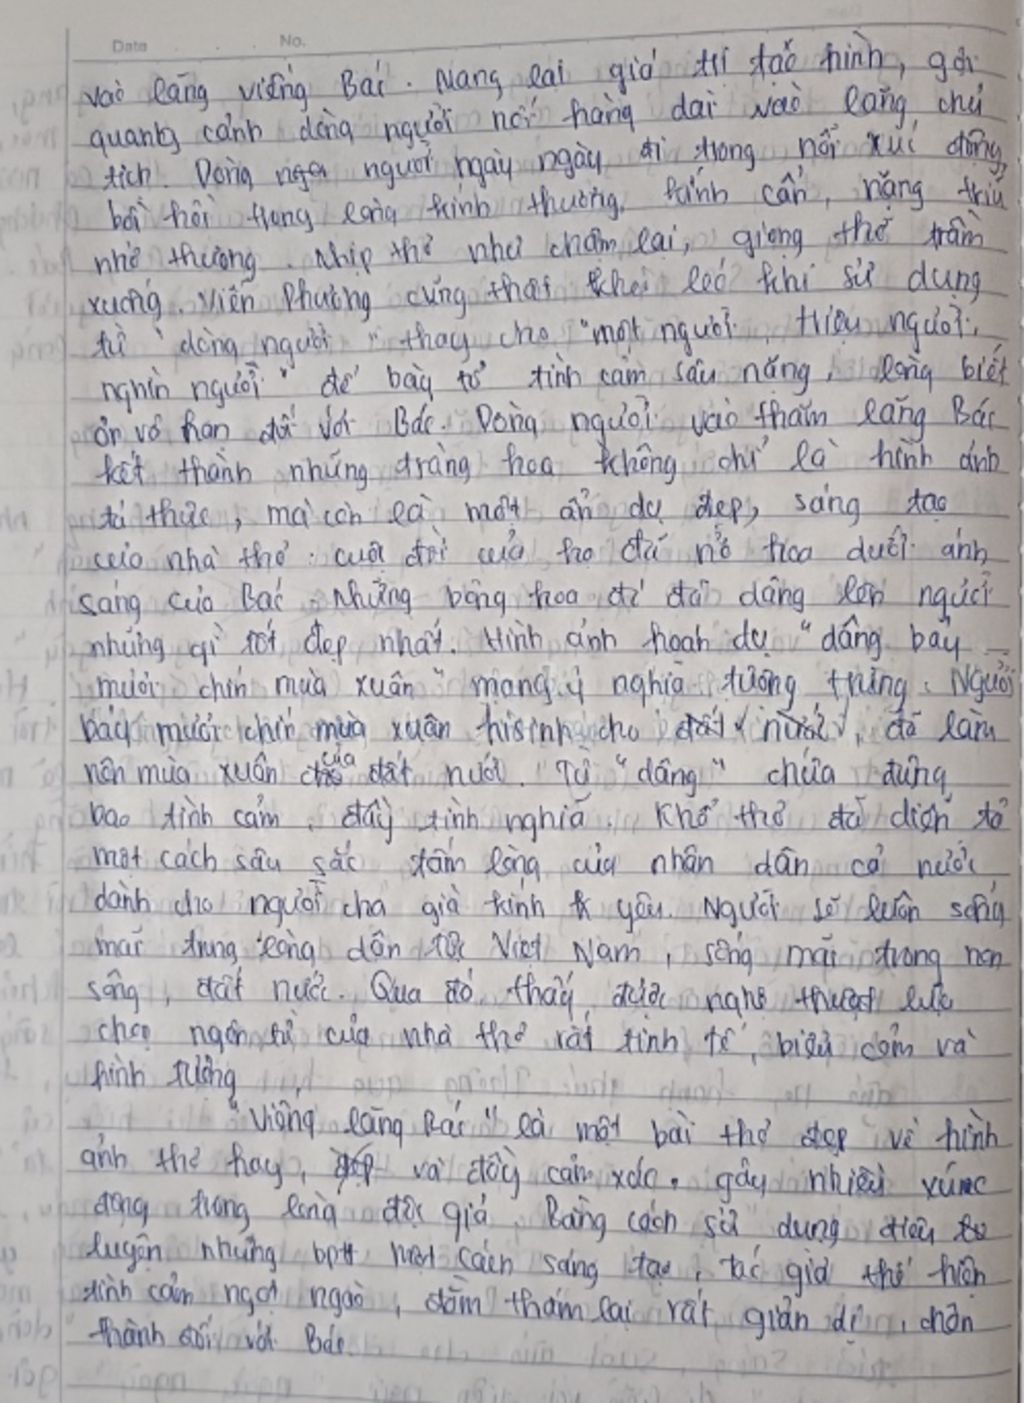 Date No.
vào lăng viếng Bác. Mang lại giá trị tạo hình, gợi
quang cảnh dòng người nối hàng dài vào lăng chủ
tịch. Dòng người ngày ngày đi trong nỗi xúc động,
bồi hồi trong lòng kính thương, kính cẩn, nặng trĩu
nhớ thương. Nhịp thơ như chậm lại, giọng thơ trầm
xuống. Viễn Phương cũng thật khéo léo khi sử dụng
từ "dòng người" thay cho "một người, triệu người,
nghìn người" để bày tỏ tình cảm sâu nặng, lòng biết
ơn vô hạn đối với Bác. Dòng người vào thăm lăng Bác
kết thành những tràng hoa không chỉ là hình ảnh
tả thực, mà còn là một ẩn dụ đẹp, sáng tạo
của nhà thơ: cuộc đời của họ đã nở hoa dưới ánh
sáng của Bác. Những bông hoa đó đã dâng lên người
những gì tốt đẹp nhất. Hình ảnh hoán dụ "dâng bảy
mươi chín mùa xuân" mang ý nghĩa tượng trưng. Người
bảy mươi chín mùa xuân hi sinh cho đất nước, đã làm
nên mùa xuân của đất nước. Từ "dâng" chứa đựng
bao tình cảm, đầy tình nghĩa. Khổ thơ đã diễn tả
một cách sâu sắc tấm lòng của nhân dân cả nước
dành cho người cha già kính yêu. Người sẽ luôn sống
mãi trong lòng dân tộc Việt Nam, sống mãi trong non
sông, đất nước. Qua đó, thấy được nghệ thuật lựa
chọn ngôn từ của nhà thơ rất tinh tế, biểu cảm và
hình tượng
"Viếng lăng Bác" là một bài thơ đẹp về hình
ảnh thơ hay, và đầy cảm xúc, gây nhiều xúc
động trong lòng độc giả. Bằng cách sử dụng điêu
luyện những bptt một cách sáng tạo, tác giả thể hiện
tình cảm ngọt ngào, đằm thắm lại rất giản dị, chân
thành đối với Bác.